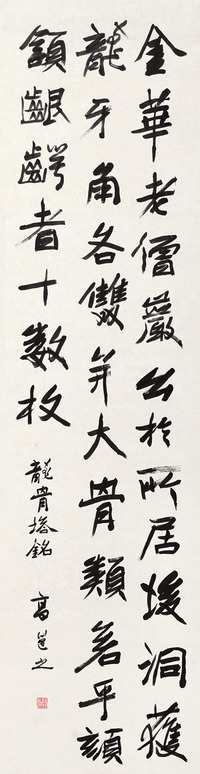 金華老僧嚴公於所居後洞獲
龍牙角各雙并大骨類若乎頦
額齦齶者十數枚
龍骨塔銘 高邕之